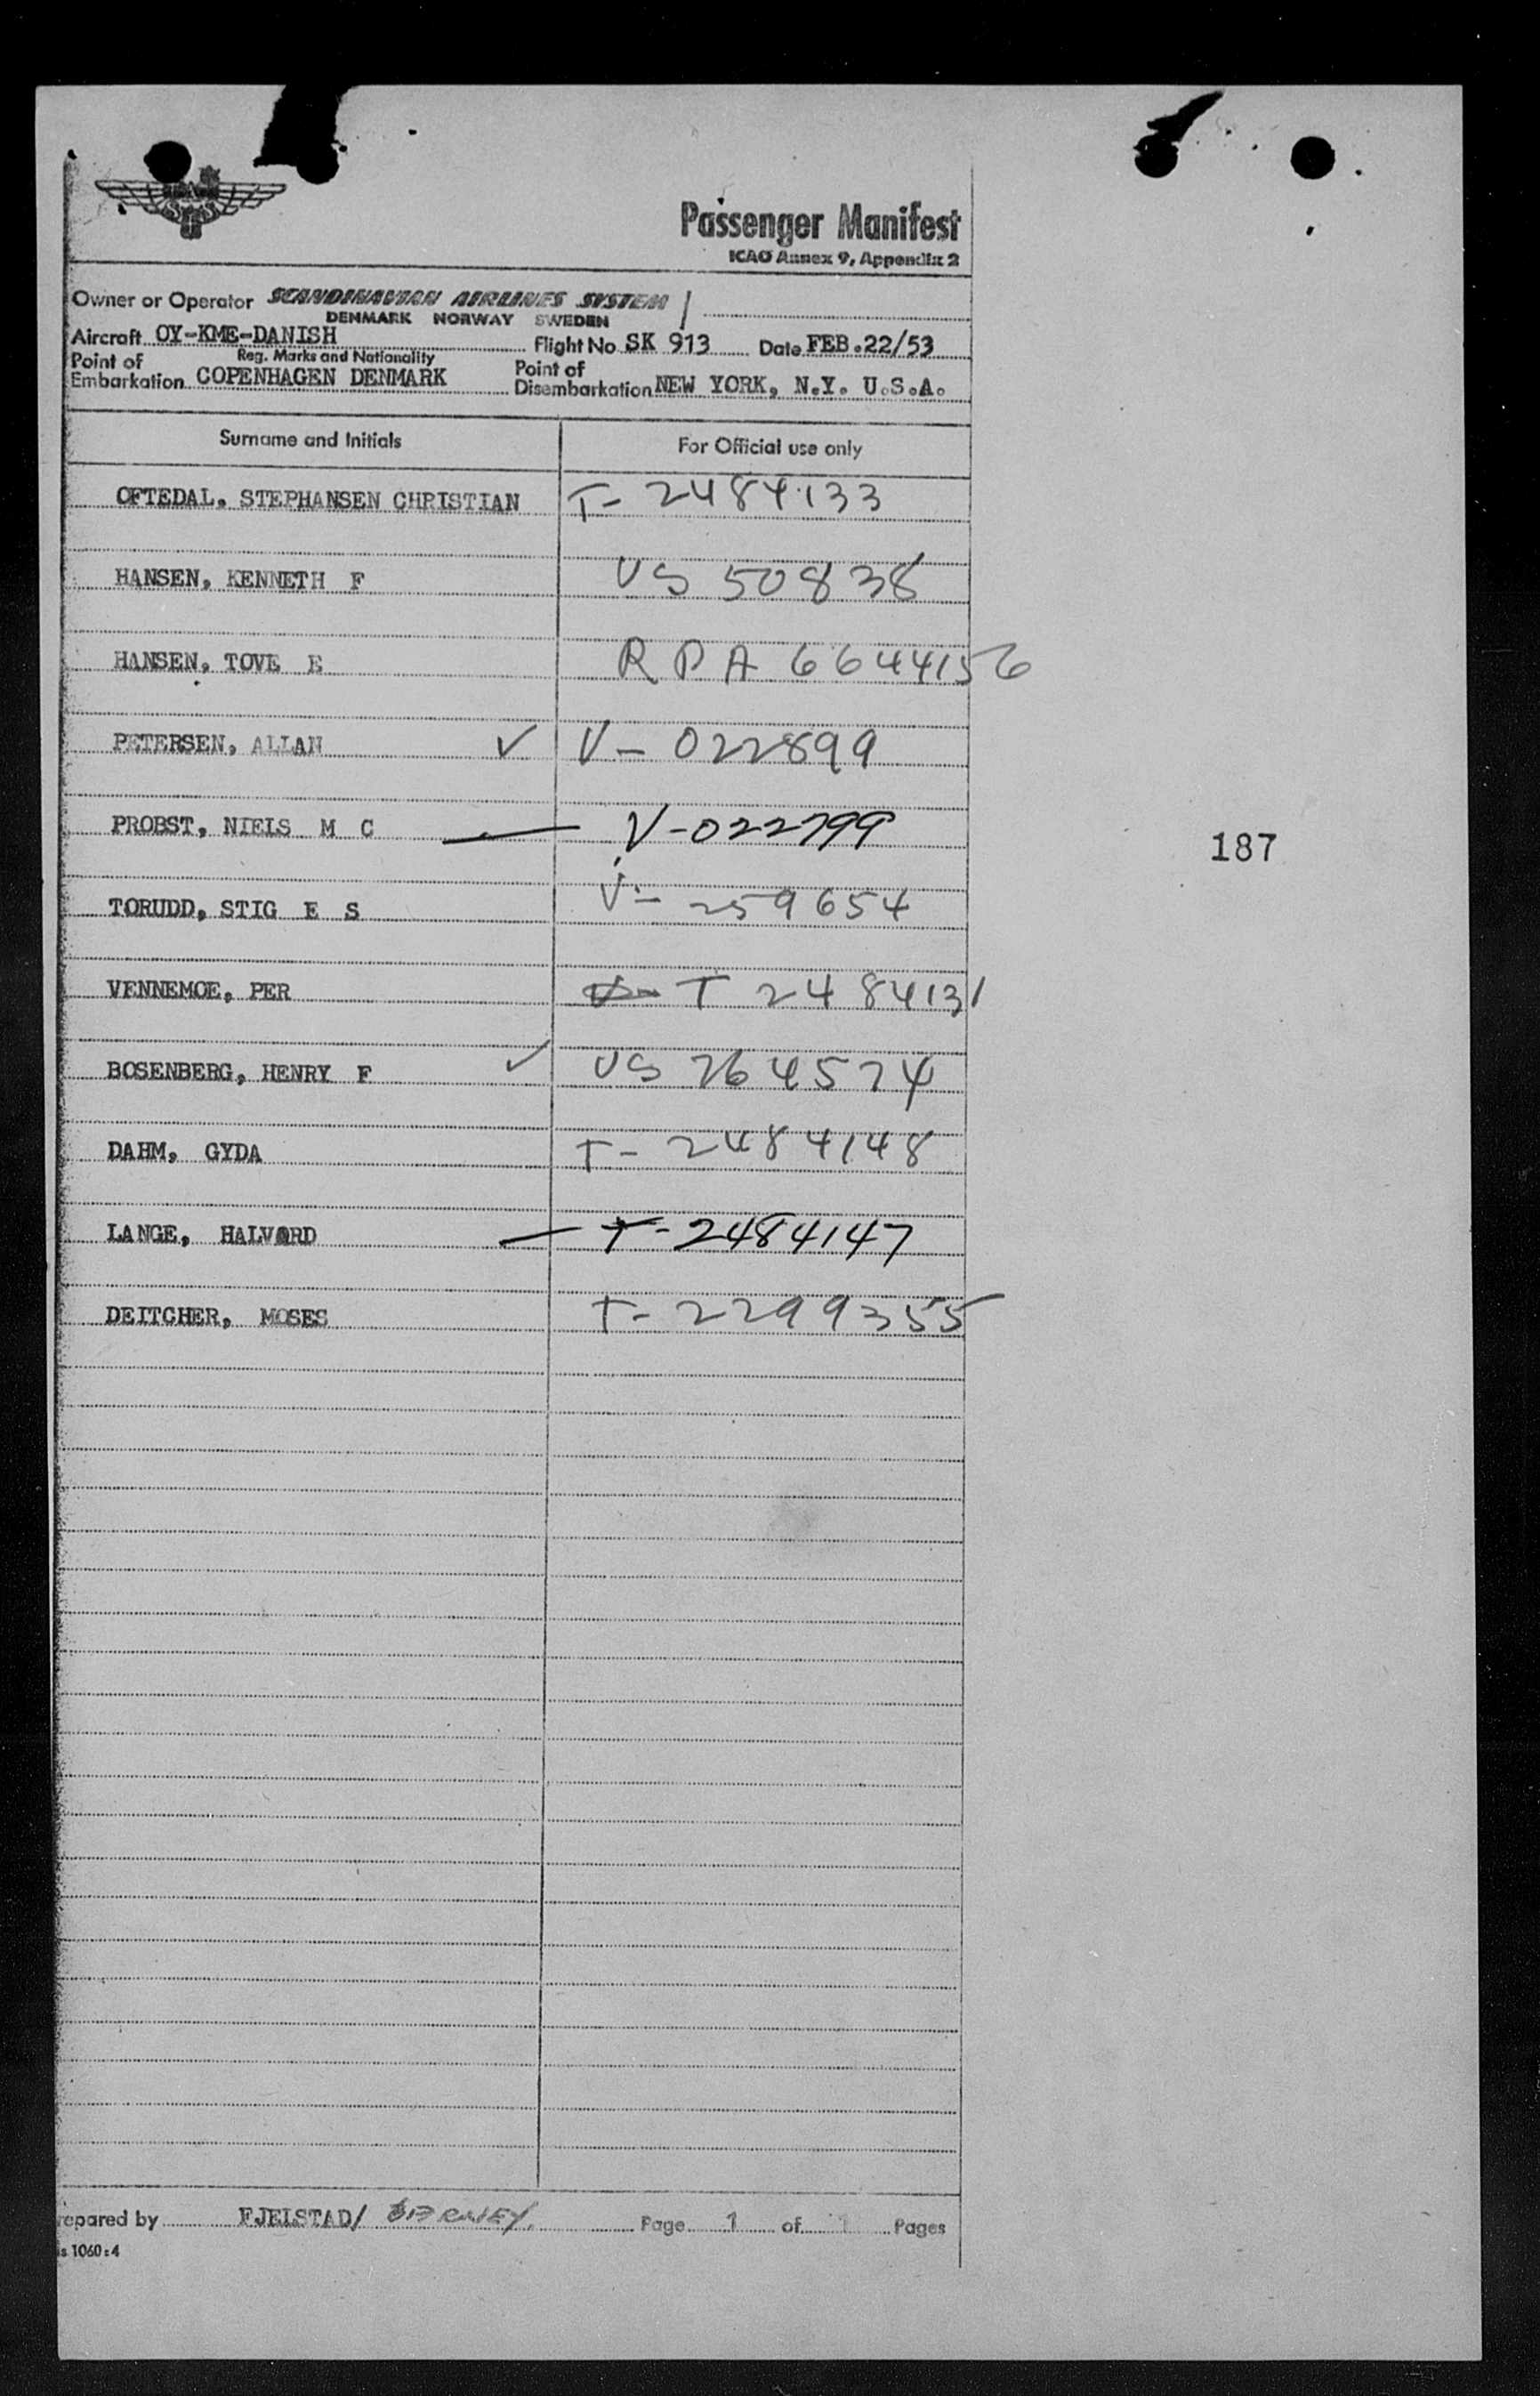 Passenger Manifest
ICAO Annex 9, Appendix 2
Owner or Operator SCANDINAVIAN AIRLINES SYSTEM
DENMARK NORWAY SWEDEN
Aircraft OY-KME-DANISH Flight No SK 913 Date FEB.22/53
Reg. Marks and Nationality
Point of Embarkation COPENHAGEN DENMARK Point of Disembarkation NEW YORK, N.Y. U.S.A.
Surname and Initials For Official use only
OFTEDAL, STEPHANSEN CHRISTIAN T- 2484133
HANSEN, KENNETH F US 50838
HANSEN, TOVE E RPA 6644156
PETERSEN, ALLAN ✓ V- 022899
PROBST, NIELS M C — V-022799
187
TORUDD, STIG E S V- 259654
VENNEMOE, PER T 2484131
BOSENBERG, HENRY F ✓ US 264574
DAHM, GYDA T- 2484148
LANGE, HALVARD — T-2484147
DEITCHER, MOSES T- 2299355
repared by FJELSTAD/ Page 1 of 1 Pages
is 1060:4